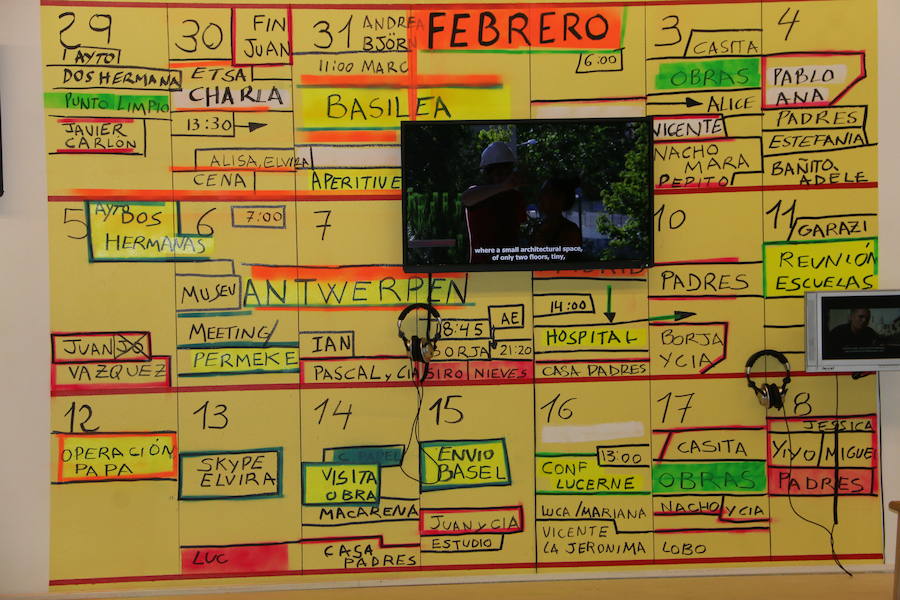 29
AYTO
DOS HERMANA
PUNTO LIMPIO
JAVIER
CARLÓN
30
FIN
JUAN
ETSA
CHARLA
13:30
ALISA, ELVIRA
CENA
31
ANDREA
BJÖRN
11:00 MARC
BASILEA
APERITIVE
FEBRERO
6:00
3
CASITA
OBRAS
ALICE
VICENTE
NACHO MARA
PEPITO
4
PABLO
ANA
PADRES
ESTEFANÍA
BAÑITO
ADELE
where a small architectural space,
of only two floors, tiny,
5
AYTO DOS
HERMANAS
JUAN JO
VAZQUEZ
6
7:00
MUSEU
MEETING/
PERMEKE
7
ANTWERPEN
IAN
PASCAL y CIA
8:45
AE
BORJA
21:20
SIRO NIEVES
MADRID
14:00
HOSPITAL
CASA PADRES
10
PADRES
BORJA
Y CIA
11
GARAZI
REUNIÓN
ESCUELAS
12
OPERACIÓN
PAPA
13
SKYPE
ELVIRA
LUC
14
C. PAPEL
VISITA
OBRA
MACARENA
CASA
PADRES
15
ENVIO
BASEL
JUAN Y CIA
ESTUDIO
16
13:00
CONF
LUCERNE
LUCA/MARIANA
VICENTE
LA JERONIMA
17
CASITA
OBRAS
NACHO Y CIA
LOBO
8
JESSICA
YIYO/MIGUEL
PADRES